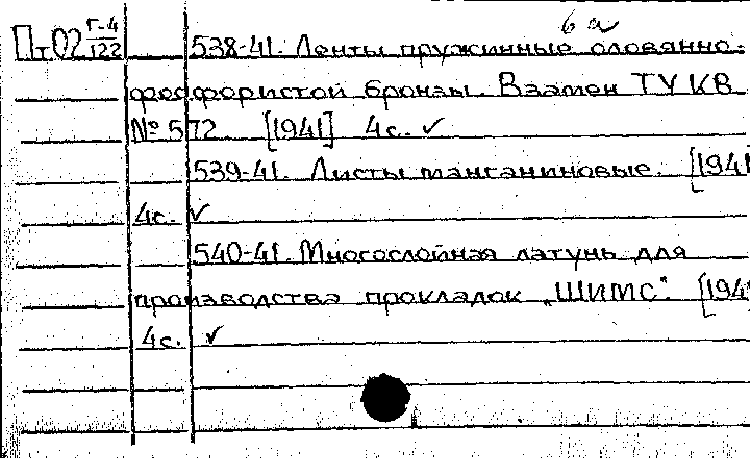 6а
Пт02 Г-4/122 538-41. Ленты пружинные оловянно-
фосфористой бронзы. Взамен ТУ КВ
№ 572. [1941] 4с. ✓
539-41. Листы манганиновые. [1941
4с. ✓
540-41. Многослойная латунь для
производства прокладок „ШИМС". [194
4с. ✓